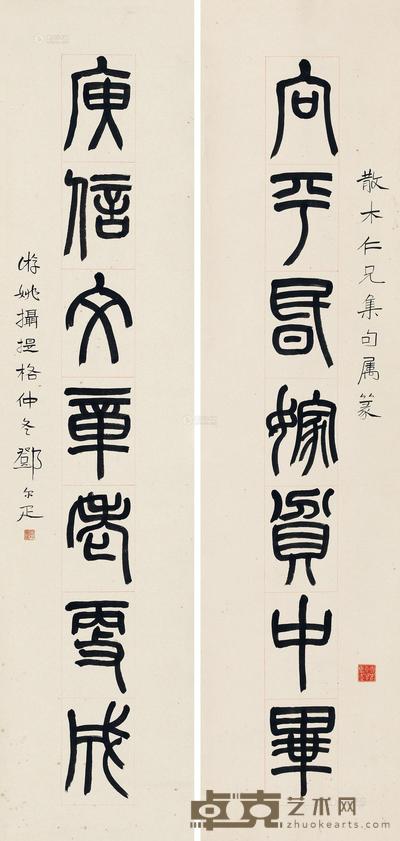 散木仁兄集句属篆
向平昏嫁貧中畢
庾信文章老更成
游姚攝提格仲冬鄧尔疋
卓克艺术网
zhuokearts.com